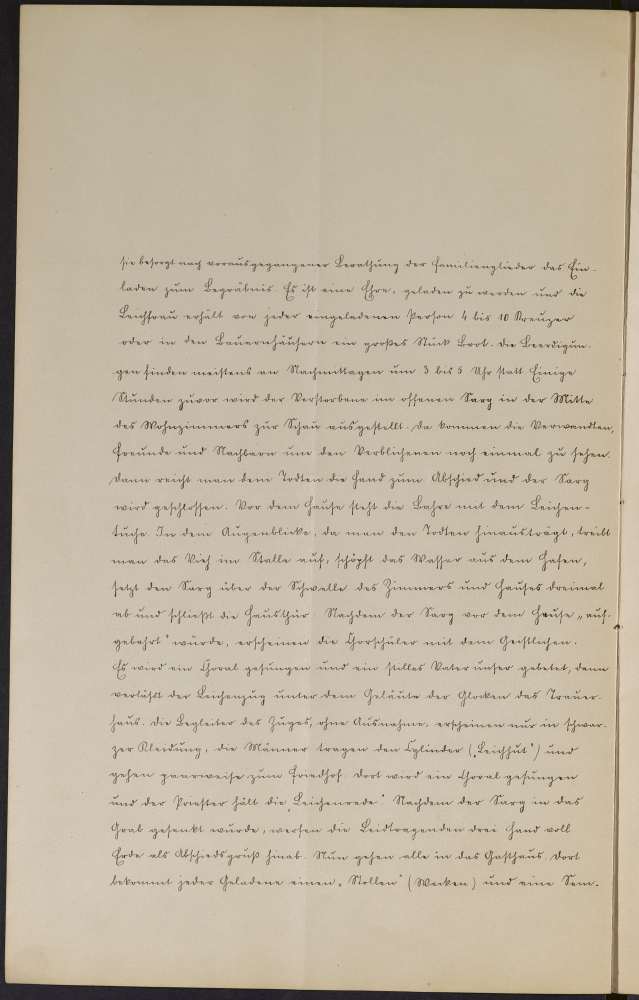 sie besorgt nach vorausgegangener Berathung der Familienglieder das Ein-
laden zum Begräbnis. Es ist eine Ehre, geladen zu werden und die
Leichfrau erhält von jeder eingeladenen Person 4 bis 10 Kreuzer
oder in den Bauernhäusern ein großes Stück Brot. Die Beerdigun-
gen finden meistens an Nachmittagen um 3 bis 5 Uhr statt. Einige
Stunden zuvor wird der Verstorbene im offenen Sarg in der Mitte
des Wohnzimmers zur Schau ausgestellt. Da kommen die Verwandten,
Freunde und Nachbarn um den Verblichenen noch einmal zu sehen.
Dann reicht man dem Todten die Hand zum Abschied und der Sarg
wird geschlossen. Vor dem Hause steht die Bahre mit dem Leichen-
tuche. In dem Augenblicke, da man den Todten hinausträgt, treibt
man das Vieh im Stalle auf, schöpft das Wasser aus dem Hafen,
setzt den Sarg über der Schwelle des Zimmers und Hauses dreimal
ab und schließt die Hausthür. Nachdem der Sarg vor dem Hause „auf-
gebahrt" wurde, erscheinen die Chorschüler mit dem Geistlichen.
Es wird ein Choral gesungen und ein stilles Vater unser gebetet, dann
verläßt der Leichenzug unter dem Geläute der Glocken das Trauer-
haus. Die Begleiter des Zuges, ohne Ausnahme, erscheinen nur in schwar-
zer Kleidung, die Männer tragen den Cylinder („Leichhut") und
gehen paarweise zum Friedhof. Dort wird ein Choral gesungen
und der Priester hält die „Leichenrede." Nachdem der Sarg in das
Grab gesenkt wurde, werfen die Leidtragenden drei Hand voll
Erde als Abschiedsgruß hinab. Nun gehen alle in das Gasthaus. Dort
bekommt jeder Geladene einen „Stollen" (Wecken) und eine Sem-